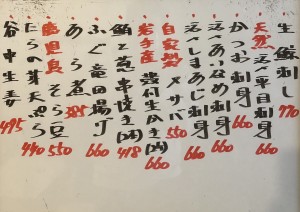 生鯨刺し 770
天然 活〆平目刺身
かつお刺身 660
活〆あいなめ刺身 660
活〆しまあじ刺身 660
自家製 〆サバ 550
岩手産 殻付生かき(1ヶ) 660
鮪と葱串焼き(1本) 418
ふぐ竜田揚げ 660
あら煮 385
鹿児島 そら豆 550
たらの芽天ぷら 440
谷中生姜 495